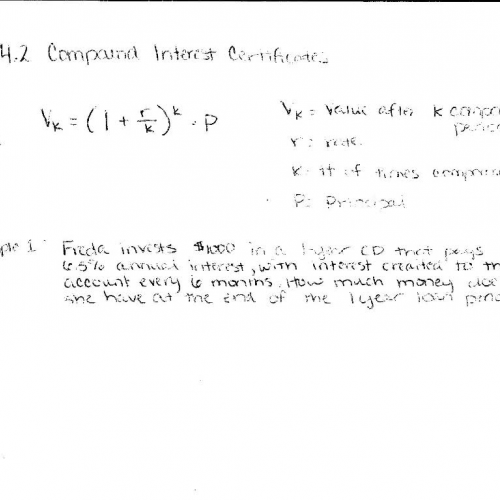 4.2 Compound Interest Certificates
Vk = (1 + r/k)^k · P
Vk = Value after k
r = rate
k = # of times
P: Principal
1: Freda invests $1000 in a 1-year CD that pays
6.5% annual interest, with interest credited to
account every 6 months. How much money
she have at the end of the 1 year loan